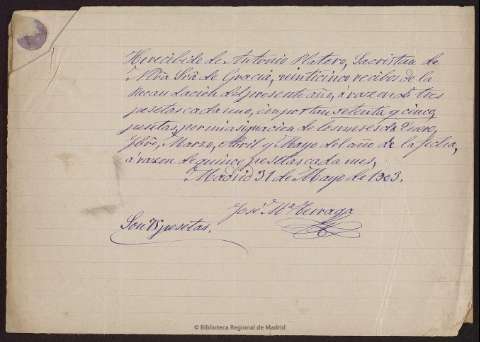 He recibido de Antonio Platero, Sacristan de
Ntra Sra de Gracia, veinticinco recibos de la
Recaudación del presente año, a razon de tres
pesetas cada uno, importan setenta y cinco
pesetas, por mi asignacion de los meses de Enero,
Febro, Marzo, Abril y Mayo del año de la fecha,
a razon de quince pesetas cada mes,
Madrid 31 de Mayo de 1903.
José Mª
Son 75 pesetas.
© Biblioteca Regional de Madrid